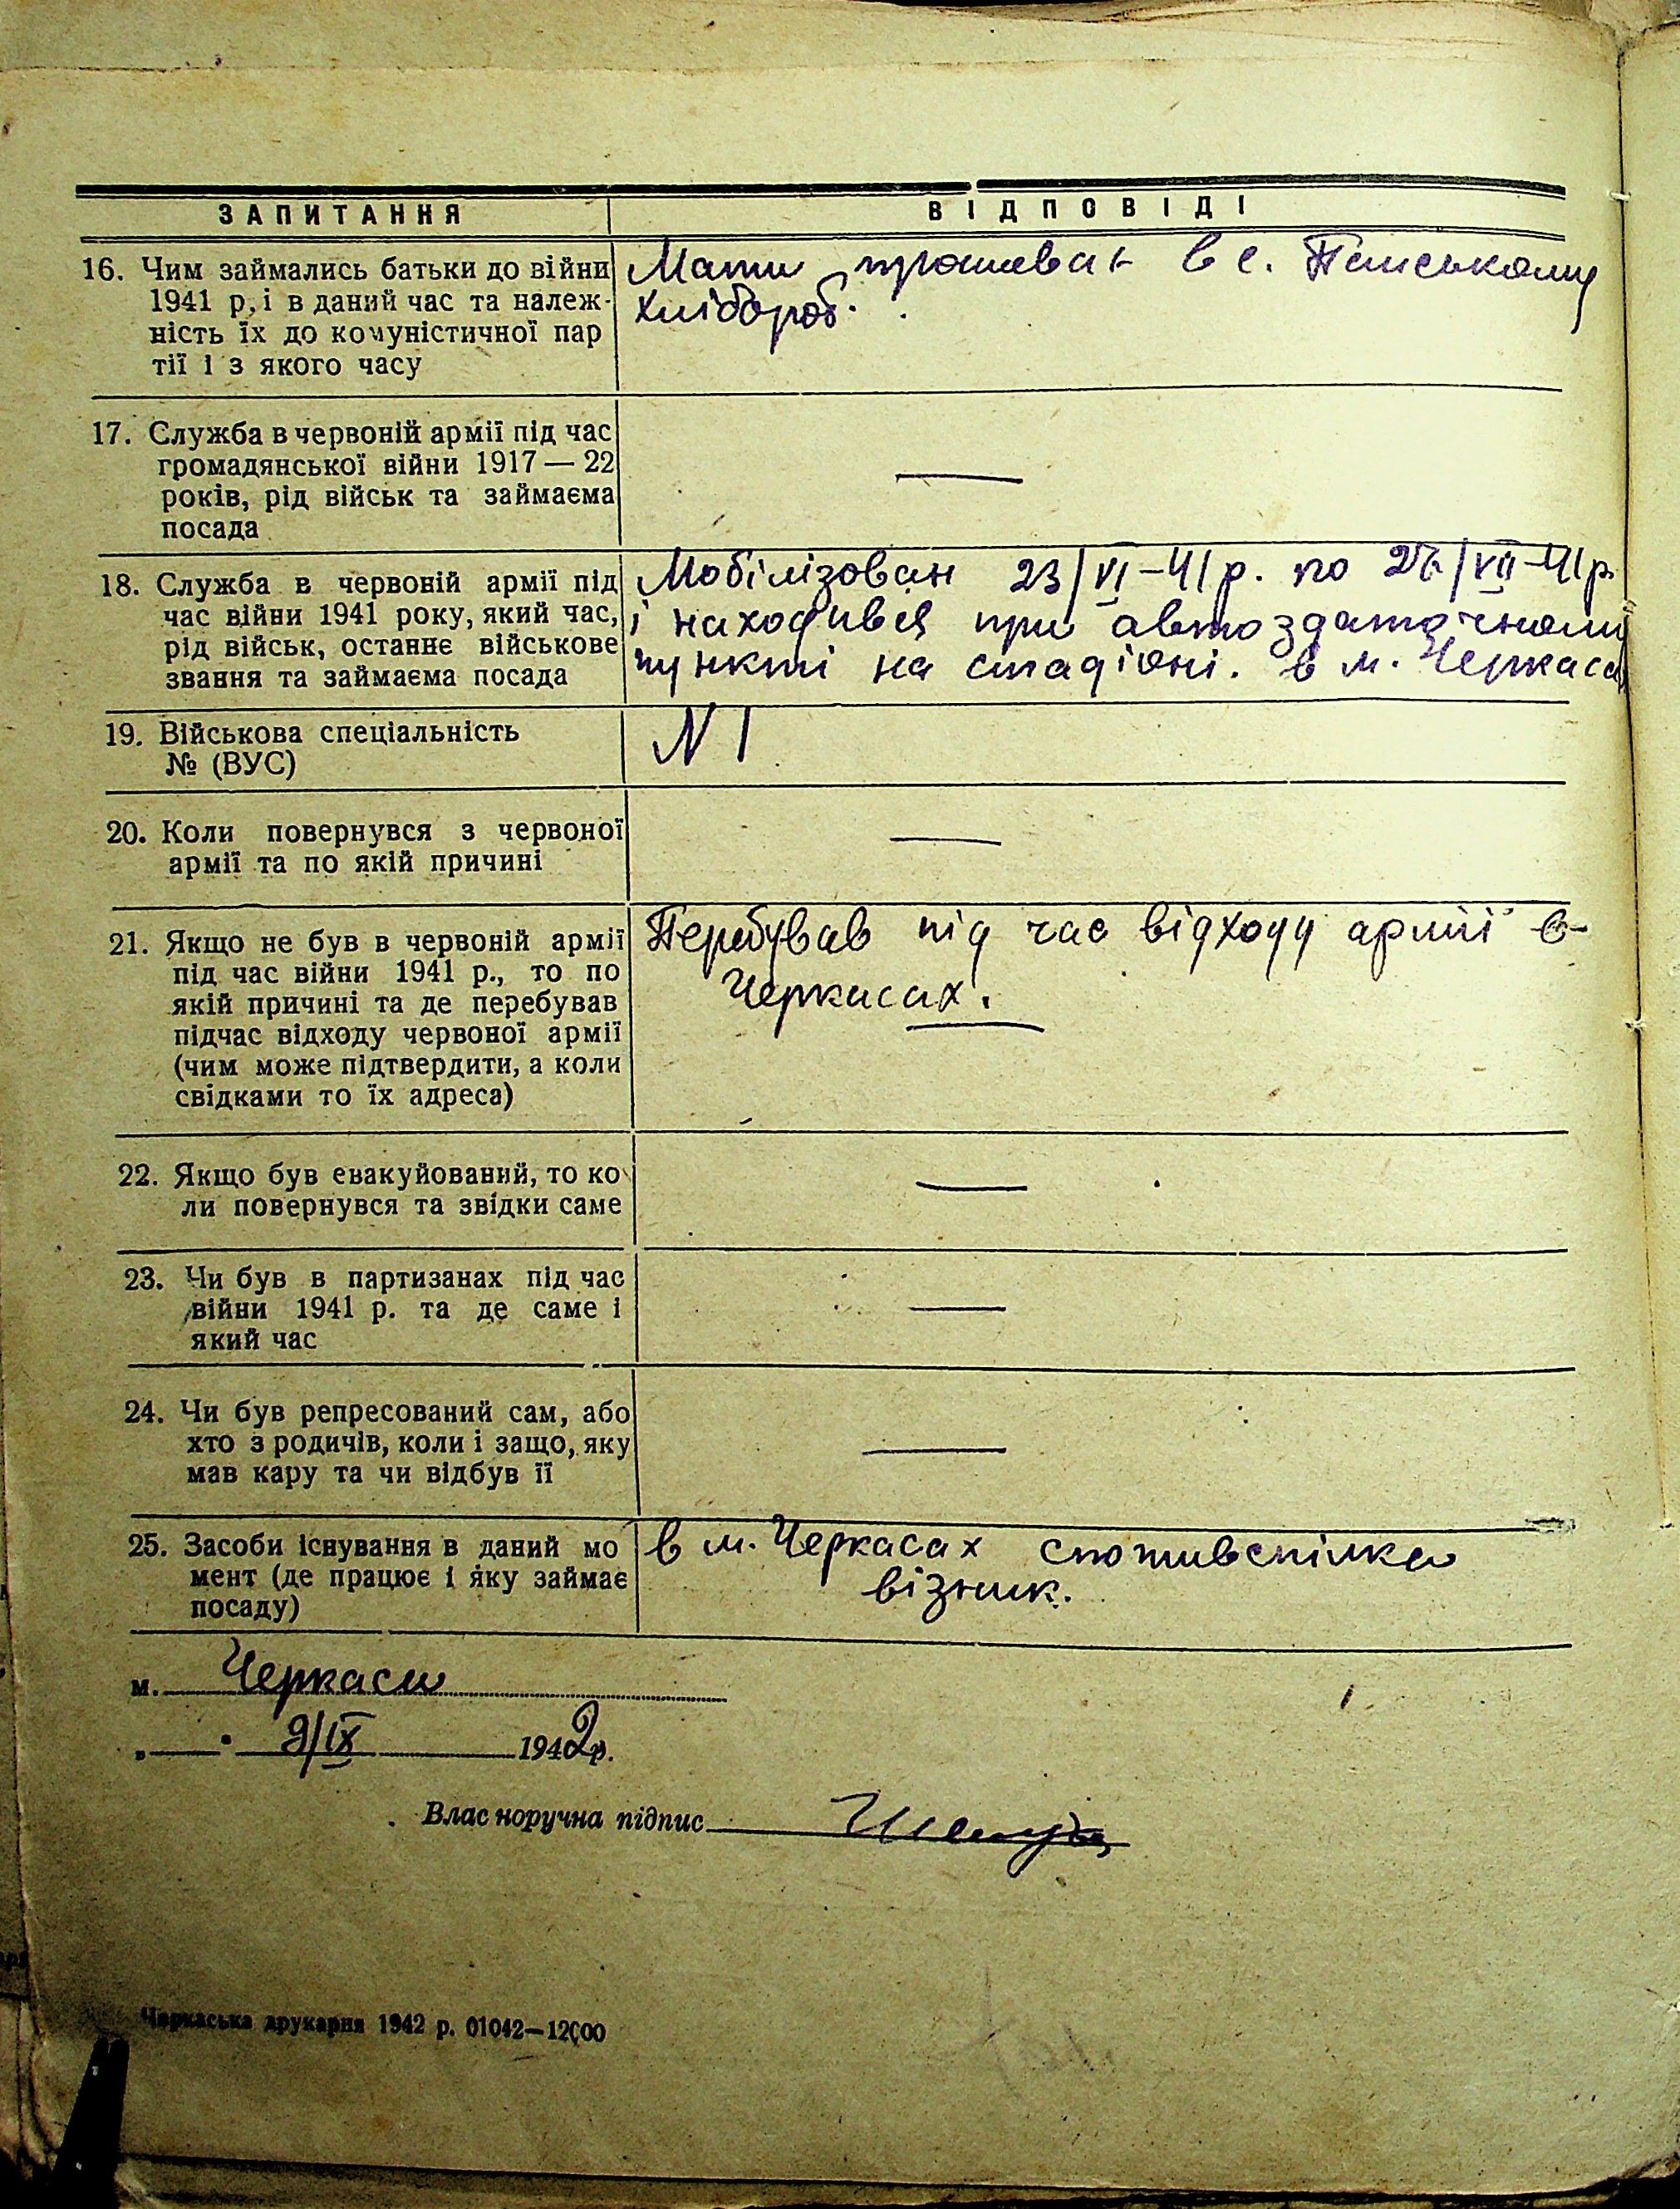 ЗАПИТАННЯ
ВІДПОВІДІ
16. Чим займались батьки до війни
1941 р, і в даний час та належ-
ність їх до комуністичної пар
тії і з якого часу
Мати в с.
хлібороб.
17. Служба в червоній армії під час
громадянської війни 1917 — 22
років, рід військ та займаєма
посада
—
18. Служба в червоній армії під
час війни 1941 року, який час,
рід військ, останнє військове
звання та займаєма посада
Мобілізован 23/VI-41 р. по /VII-41 р.
і находився при автоздаточному
пункті на стадіоні. в м. Черкаси
19. Військова спеціальність
№ (ВУС)
N 1
20. Коли повернувся з червоної
армії та по якій причині
—
21. Якщо не був в червоній армії
під час війни 1941 р., то по
якій причині та де перебував
підчас відходу червоної армії
(чим може підтвердити, а коли
свідками то їх адреса)
Перебував під час відходу армії в
Черкасах.
22. Якщо був евакуйований, то ко
ли повернувся та звідки саме
—
23. Чи був в партизанах під час
війни 1941 р. та де саме і
який час
—
24. Чи був репресований сам, або
хто з родичів, коли і защо, яку
мав кару та чи відбув її
—
25. Засоби існування в даний мо
мент (де працює і яку займає
посаду)
в м. Черкасах споживспілка
візник.
м. Черкаси
„ " 9/IX 1942 р.
Власноручна підпис
Черкаська друкарня 1942 р. 01042—12000